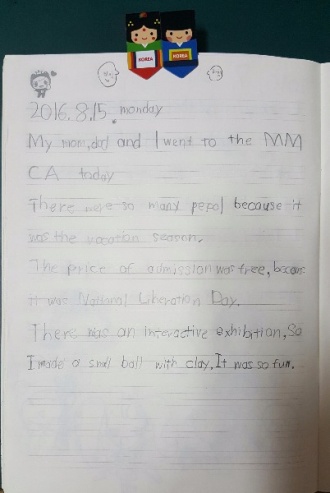 KOREA KOREA
2016. 8. 15. monday
My mom, dad and I went to the MM
CA today
There were so many pepol because it
was the vacation season.
The price of admission was free, becaus
it was National Liberation Day.
There was an interactive exhibition, So
I made a small ball with clay, It was so fun.